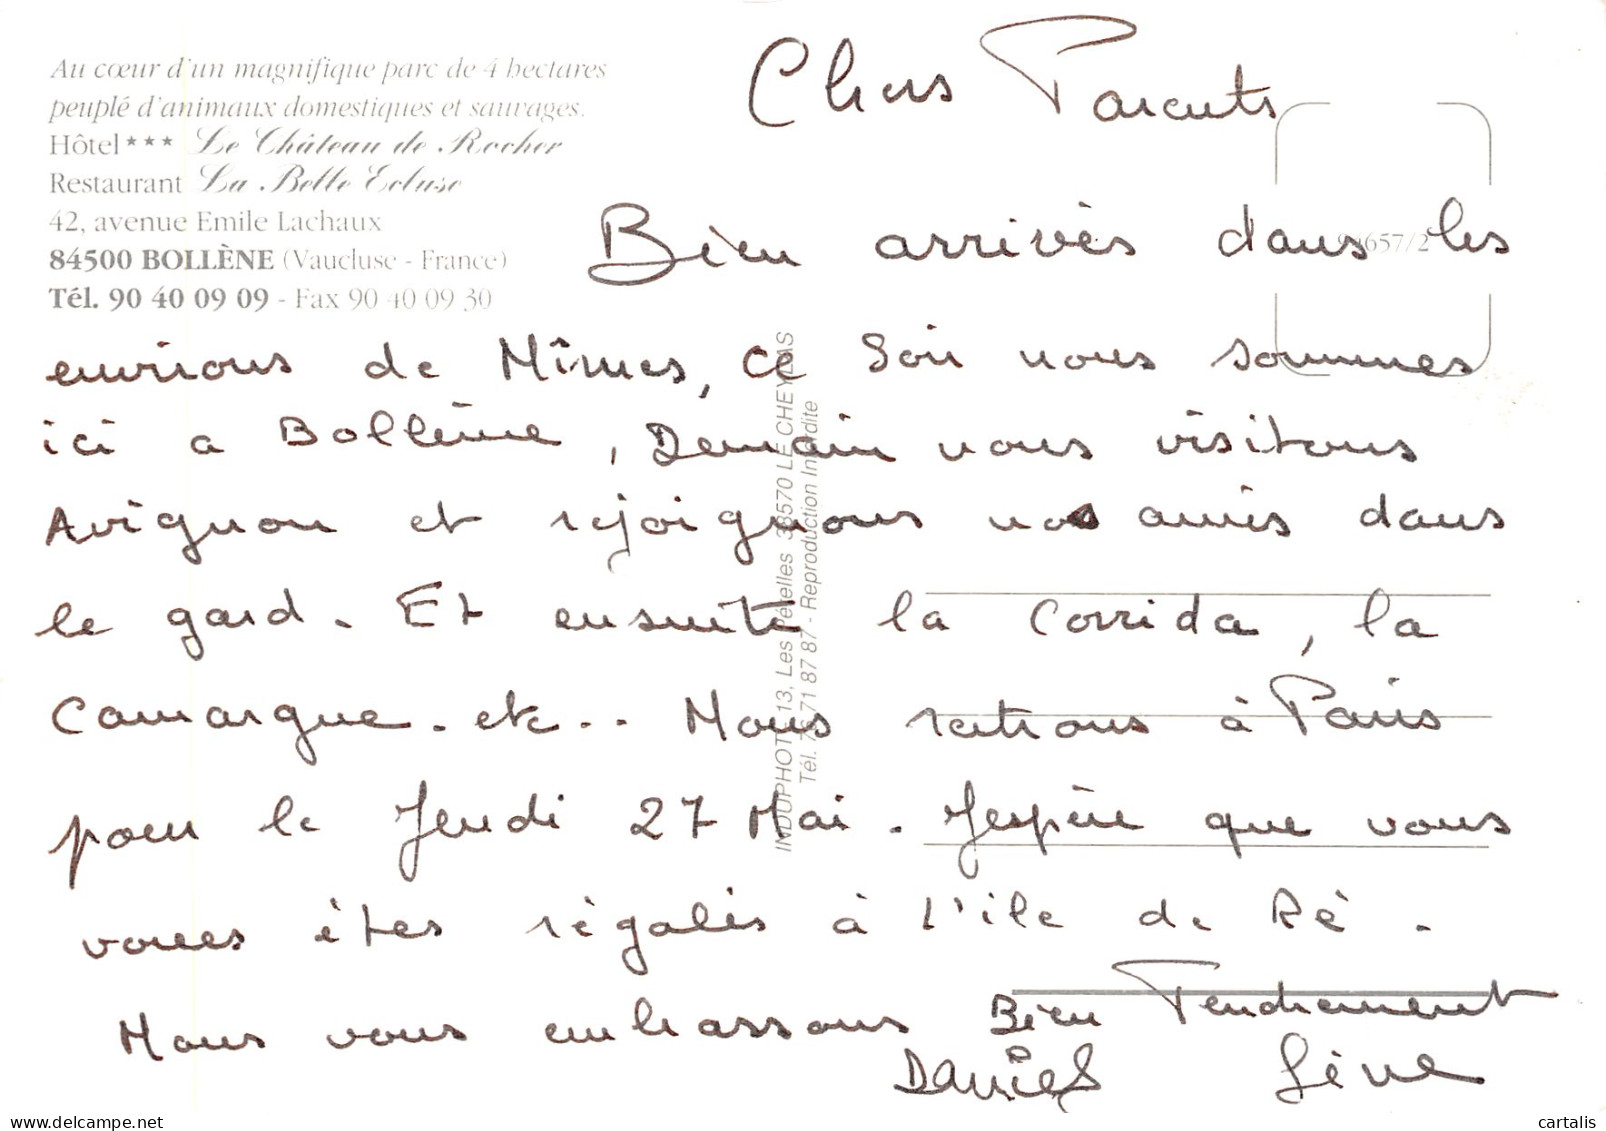 Au cœur d'un magnifique parc de 4 hectares
peuplé d'animaux domestiques et sauvages.
Hôtel*** Le Château de Rocher
Restaurant La Belle Ecluse
42, avenue Emile Lachaux
84500 BOLLÈNE (Vaucluse - France)
Tél. 90 40 09 09 - Fax 90 40 09 30
Chers Parents
Bien arrivés dans les
environs de Nîmes, ce soir nous sommes
ici a Bollène, Demain nous visitons
Avignon et rejoignons nos amis dans
le gard. Et ensuite la Corrida, la
Camargue. etc.. Nous rentrons à Paris
pour le Jeudi 27 Mai. J'espère que vous
vous êtes régalés à L'île de Ré.
Nous vous embrassons Bien Tendrement
Daniel
657/2
INDUPHOT 13, Les 38570 LE CHEYLAS
Tél. 76 71 87 87 - Reproduction Interdite
cartalis